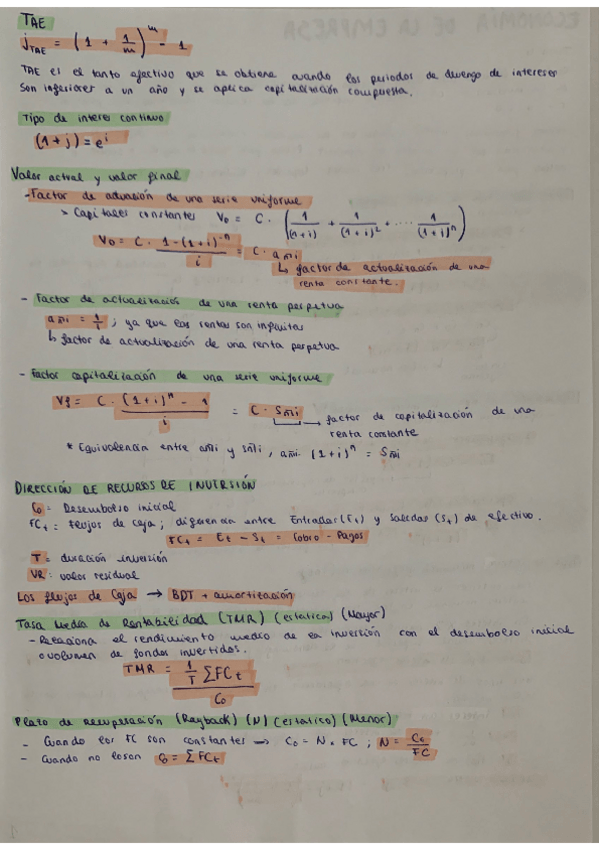 TAE
j TAE = (1 + 1/m)^m - 1
TAE es el tanto efectivo que se obtiene cuando los periodos de devengo de intereses
son inferiores a un año y se aplica capitalización compuesta.
Tipo de interes continuo
(1+j) = e^i
Valor actual y valor final
- Factor de actuación de una serie uniforme
> Capitales constantes V0 = C · (1/(1+i) + 1/(1+i)^2 + ... 1/(1+i)^n)
V0 = C · (1-(1+i)^-n)/i = C · a n̄i
↳ factor de actualización de una
renta constante.
- Factor de actualización de una renta perpetua
a n̄i = 1/i ; ya que las rentas son infinitas
↳ factor de actualización de una renta perpetua
- Factor capitalización de una serie uniforme
Vf = C · ((1+i)^n - 1)/i = C · S n̄i → factor de capitalización de una
renta constante
* Equivalencia entre a n̄i y s n̄i, a n̄i · (1+i)^n = S n̄i
DIRECCIÓN DE RECURSOS DE INVERSIÓN
C0 = Desembolso inicial
FCt = Flujos de caja ; diferencia entre Entradas (Et) y Salidas (St) de efectivo.
FCt = Et - St = Cobro - Pagos
T = duración inversión
VR = valor residual
Los flujos de Caja → BDT + amortización
Tasa Media de Rentabilidad (TMR) (estatico) (Mayor)
- Relaciona el rendimiento medio de la inversión con el desembolso inicial
o volumen de fondos invertidos.
TMR = (1/T ΣFCt)/C0
Plazo de Recuperación (Payback) (N) (estatico) (Menor)
- Cuando los FC son constantes → C0 = N × FC ; N = C0/FC
- Cuando no lo son C0 = ΣFCt